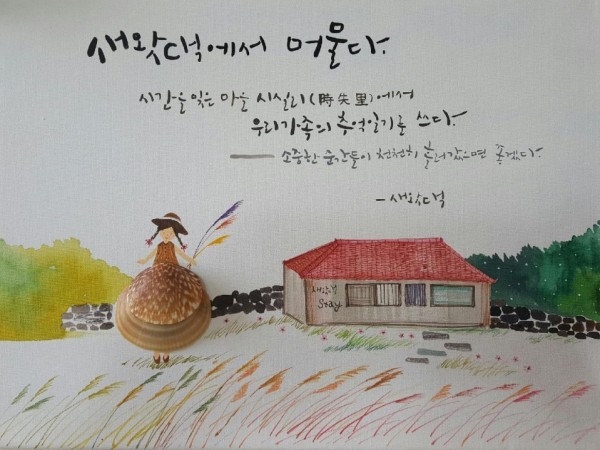 새왓덕에서 머물다.
시간을 잊은 마을 시실리(時失里)에서
우리가족의 추억일기를 쓰다.
소중한 순간들이 천천히 흘러갔으면 좋겠다.
- 새왓덕
새왓덕
Stay